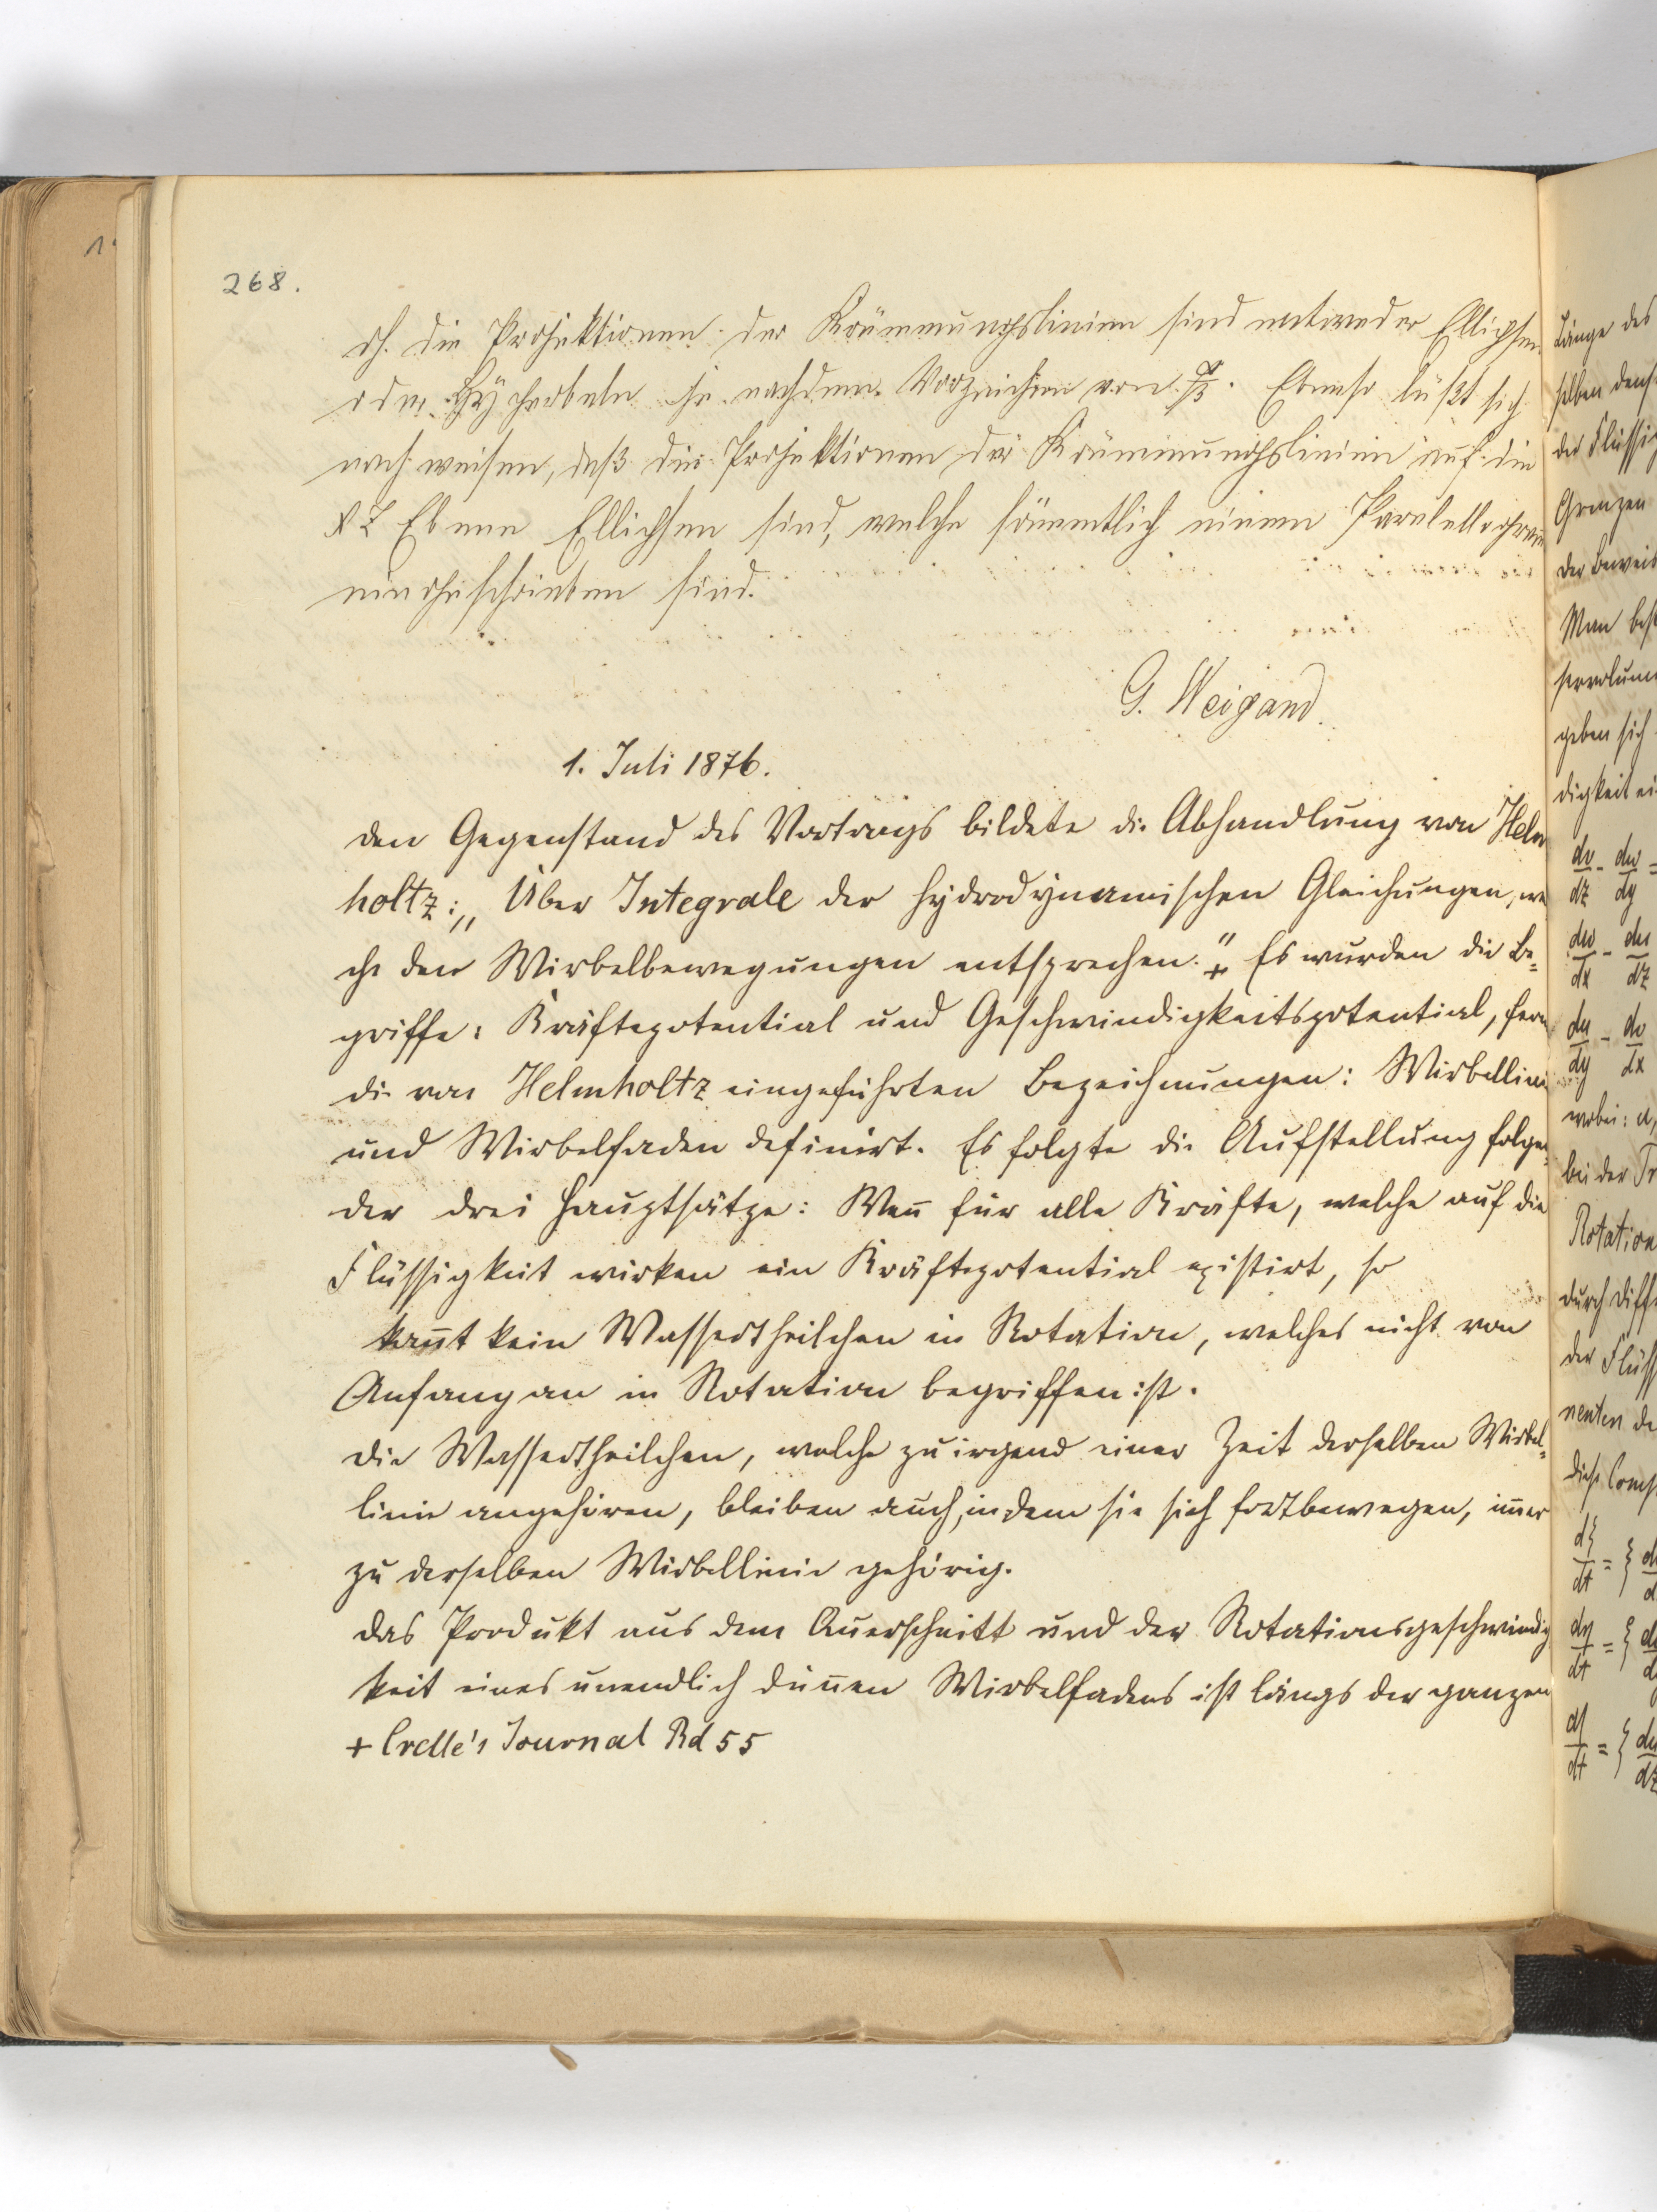 268.
dh. die Projektionen der Krümmungslinien sind entweder Ellipsen
oder Hyperbeln je nachdem Vorzeichen von. Ebenso läßt sich
nachweisen, daß die Projektionen der Krümmungslinien auf die
XZ Ebene Ellipsen sind, welche sämmtlich einem Paralellogram
eingeschrieben sind.
G. Weigand.
1. Juli 1876.
Den Gegenstand des Vortrags bildete die Abhandlung von Helm
holtz: „Über Integrale der hydrodynamischen Gleichungen, wel
che den Wirbelbewegungen entsprechen." + Es wurden die Be=
griffe: Kräftepotential und Geschwindigkeitspotential, fern
die von Helmholtz eingeführten Bezeichnungen: Wirbellini
und Wirbelfaden definirt. Es folgte die Aufstellung folgen=
der drei Hauptsätze: Wen̄ für alle Kräfte, welche auf die
Flüssigkeit wirken ein Kräftepotential existirt, so
kom̄t kein Wassertheilchen in Rotation, welches nicht von
Anfang an in Rotation begriffen ist.
Die Wassertheilchen, welche zu irgend einer Zeit derselben Wirbel=
linie angehören, bleiben auch, indem sie sich fortbewegen, im̄er
zu derselben Wirbellinie gehörig.
Das Produkt aus dem Querschnitt und der Rotationsgeschwindig
keit eines unendlich dün̄en Wirbelfadens ist längs der ganzen
+ Crelle's Journal Bd 55
Länge des
selben
der Flüssig
Grenzen
der Beweis
Man
geben sich
digkeit ei
dv/dz - dw/dy =
dw/dx - du/dz
du/dy - dv/dx
wobei: u,
bei der
Rotation
durch Diff
der Flüss
nenten de
diese Comp